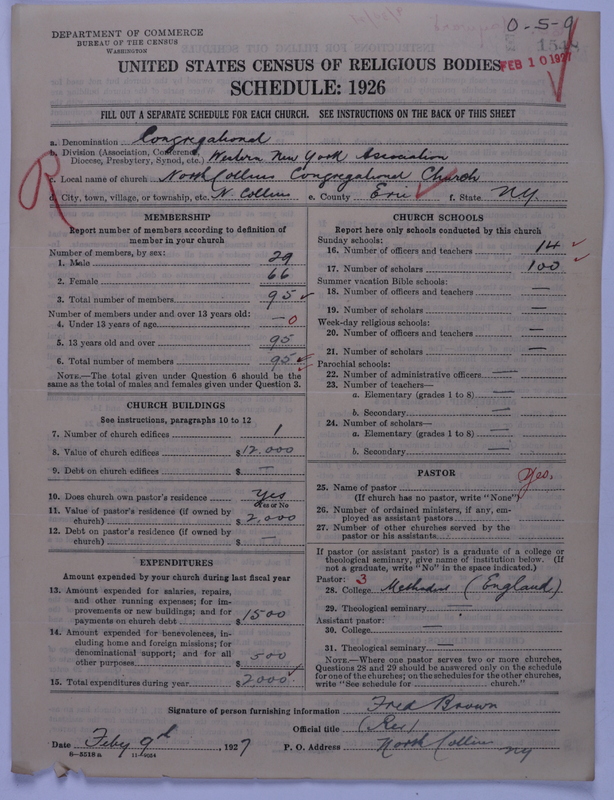 O-5-9
DEPARTMENT OF COMMERCE
BUREAU OF THE CENSUS
WASHINGTON
UNITED STATES CENSUS OF RELIGIOUS BODIES
FEB 10 1927
SCHEDULE: 1926
FILL OUT A SEPARATE SCHEDULE FOR EACH CHURCH. SEE INSTRUCTIONS ON THE BACK OF THIS SHEET
a. Denomination Congregational
b. Division (Association, Conference, Diocese, Presbytery, Synod, etc.) Western New York Association
c. Local name of church North Collins Congregational Church
d. City, town, village, or township, etc. N. Collins e. County Erie f. State N.Y.
R
MEMBERSHIP
Report number of members according to definition of
member in your church
Number of members, by sex:
1. Male 29
2. Female 66
3. Total number of members 95
Number of members under and over 13 years old:
4. Under 13 years of age — 0
5. 13 years old and over 95
6. Total number of members 95
NOTE.—The total given under Question 6 should be the
same as the total of males and females given under Question 3.
CHURCH BUILDINGS
See instructions, paragraphs 10 to 12
7. Number of church edifices 1
8. Value of church edifices $12.000
9. Debt on church edifices $ —
10. Does church own pastor's residence Yes
Yes or No
11. Value of pastor's residence (if owned by
church) $2.000
12. Debt on pastor's residence (if owned by
church) $ —
EXPENDITURES
Amount expended by your church during last fiscal year
13. Amount expended for salaries, repairs,
and other running expenses; for im-
provements or new buildings; and for
payments on church debt $1500
14. Amount expended for benevolences, in-
cluding home and foreign missions; for
denominational support; and for all
other purposes $500
15. Total expenditures during year $2000
CHURCH SCHOOLS
Report here only schools conducted by this church
Sunday schools:
16. Number of officers and teachers 14
17. Number of scholars 100
Summer vacation Bible schools:
18. Number of officers and teachers —
19. Number of scholars —
Week-day religious schools:
20. Number of officers and teachers —
21. Number of scholars —
Parochial schools:
22. Number of administrative officers —
23. Number of teachers—
a. Elementary (grades 1 to 8) —
b. Secondary —
24. Number of scholars—
a. Elementary (grades 1 to 8) —
b. Secondary —
PASTOR
25. Name of pastor Yes.
(If church has no pastor, write "None")
26. Number of ordained ministers, if any, em-
ployed as assistant pastors
27. Number of other churches served by the
pastor or his assistants
If pastor (or assistant pastor) is a graduate of a college or
theological seminary, give name of institution below. (If
not a graduate, write "No" in the space indicated.)
Pastor: 3
28. College Methodist (England)
29. Theological seminary —
Assistant pastor:
30. College —
31. Theological seminary —
NOTE.—Where one pastor serves two or more churches,
Questions 28 and 29 should be answered only on the schedule
for one of the churches; on the schedules for the other churches,
write "See schedule for church."
Signature of person furnishing information Fred Brown
Official title (Rev)
Date Feby 9th, 1927 P. O. Address North Collins NY
8-5518 a 11-9024